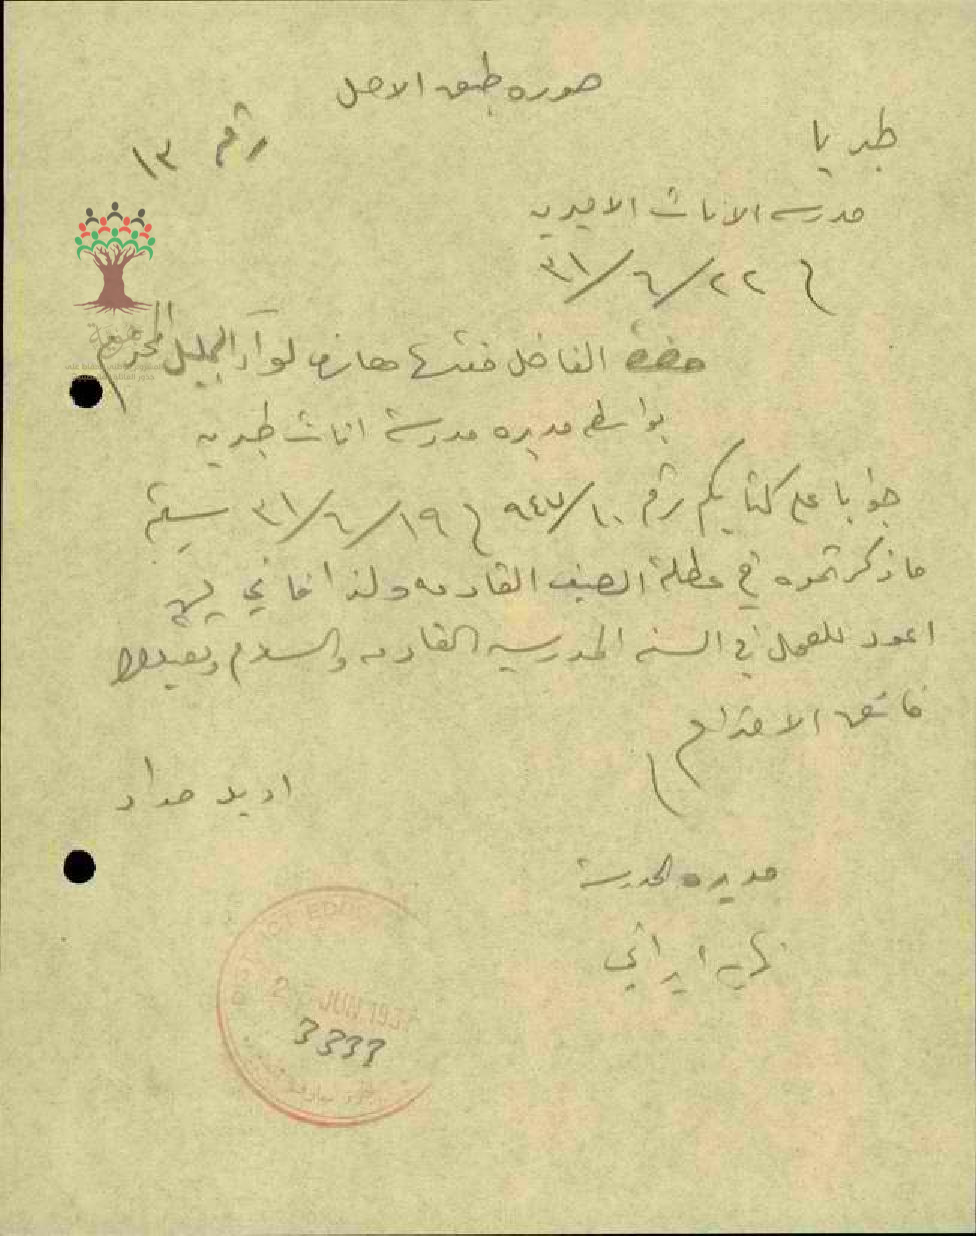 صوره طبق الاصل
طبريا
رقم ١٣
مدرسة الاناث الاميرية
٢٢/٦/٣١
حضرة الفاضل مفتش معارف لواء الجليل المحترم
بواسطة مديره مدرسة اناث طبريه
جوابا على كتابكم رقم ٩٤٧/١٠ ١٩/٦/٣١ سيتم
ما ذكرتموه في عطلة الصيف القادمه ولذا فاني
اعود للعمل في السنه المدرسيه القادمه والسلام وتفضلوا
فائق الاحترام
اديل حداد
مديره المدرسة
ايراني
JUN 193
3333